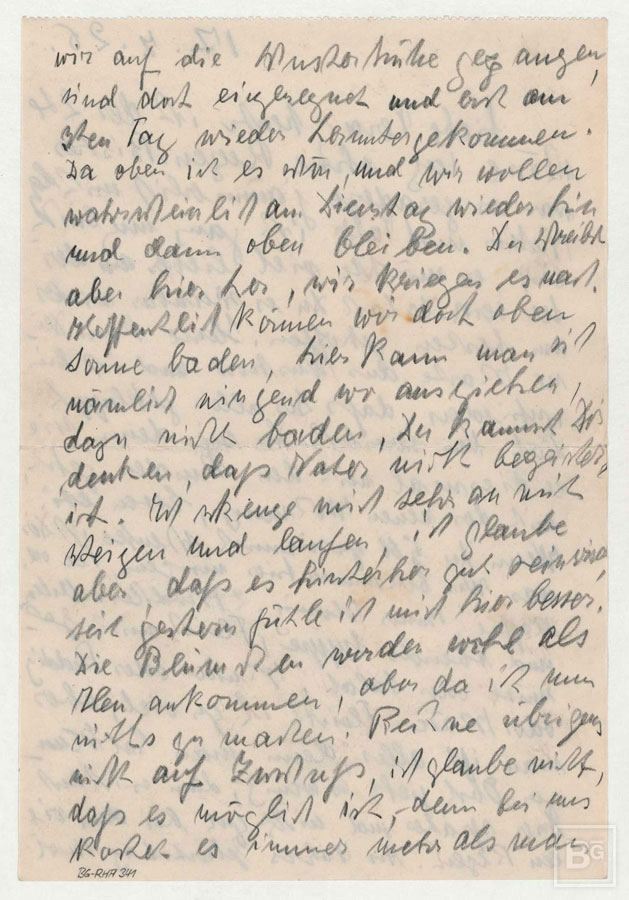 wir auf die Wusterhütte gegangen,
sind dort eingeregnet und erst am
3ten Tag wieder heruntergekommen.
Da oben ist es schön, und wir wollen
wahrscheinlich am Dienstag wieder hin
und dann oben bleiben. Du schreibst
aber hier her, wir kriegen es nach.
Hoffentlich können wir dort oben
Sonne baden, hier kann man sich
nämlich nirgend wo ausziehen,
dazu nicht baden, Du kannst Dir
denken, daß Vater nicht begeistert
ist. Ich strenge mich sehr an mit
steigen und laufen, ich glaube
aber, daß es hinterher gut sein wird,
seit gestern fühle ich mich hier besser.
Die Blümchen werden wohl als
Heu ankommen, aber da ist nun
nichts zu machen. Rechne übrigens
nicht auf Zuschuß, ich glaube nicht,
daß es möglich ist, denn bei uns
kostet es immer mehr als man
BG-RHA 341
BG